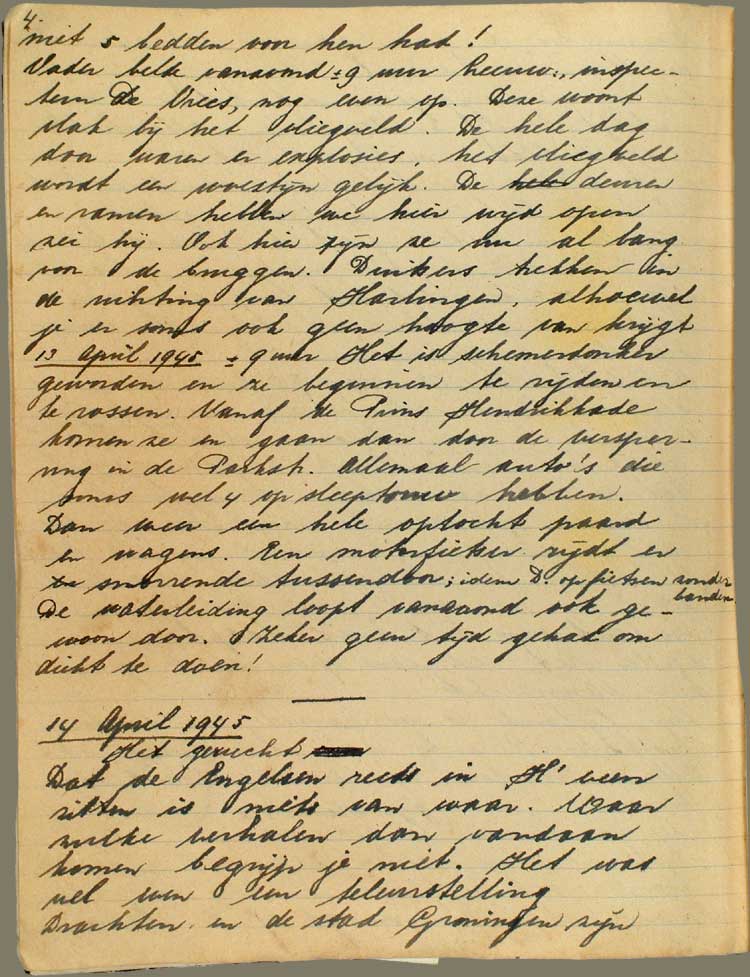 4.
niet 5 bedden voor hen had!
Vader belde vanavond ± 9 uur Leeuw:, inspec-
teur De Vries, nog even op. Deze woont
vlak bij het vliegveld. De hele dag
door waren er explosies, het vliegveld
wordt een woestijn gelijk. De hele deuren
en ramen hebben we hier wijd open
zei hij. Ook hier zijn ze nu al bang
voor de bruggen. Duitsers trekken in
de richting van Harlingen, alhoewel
je er soms ook geen hoogte van krijgt
13 April 1945 ± 9 uur Het is schemerdonker
geworden en ze beginnen te rijden en
te rossen. Vanaf de Prins Hendrikkade
komen ze en gaan dan door de versper-
ring in de Parkstr. Allemaal auto's die
soms wel 4 op sleeptouw hebben.
Dan weer een hele optocht paard
en wagens. Een motorfietser rijdt er
snorrende tussendoor; idem D. op fietsen zonder
banden.
De waterleiding loopt vanavond ook ge-
woon door. Zeker geen tijd gehad om
dicht te doen!
14 April 1945
Het gerucht
Dat de Engelsen reeds in H'veen
zitten is niets van waar. Waar
zulke verhalen dan vandaan
komen begrijp je niet. Het was
wel even een teleurstelling
Drachten en de stad Groningen zijn